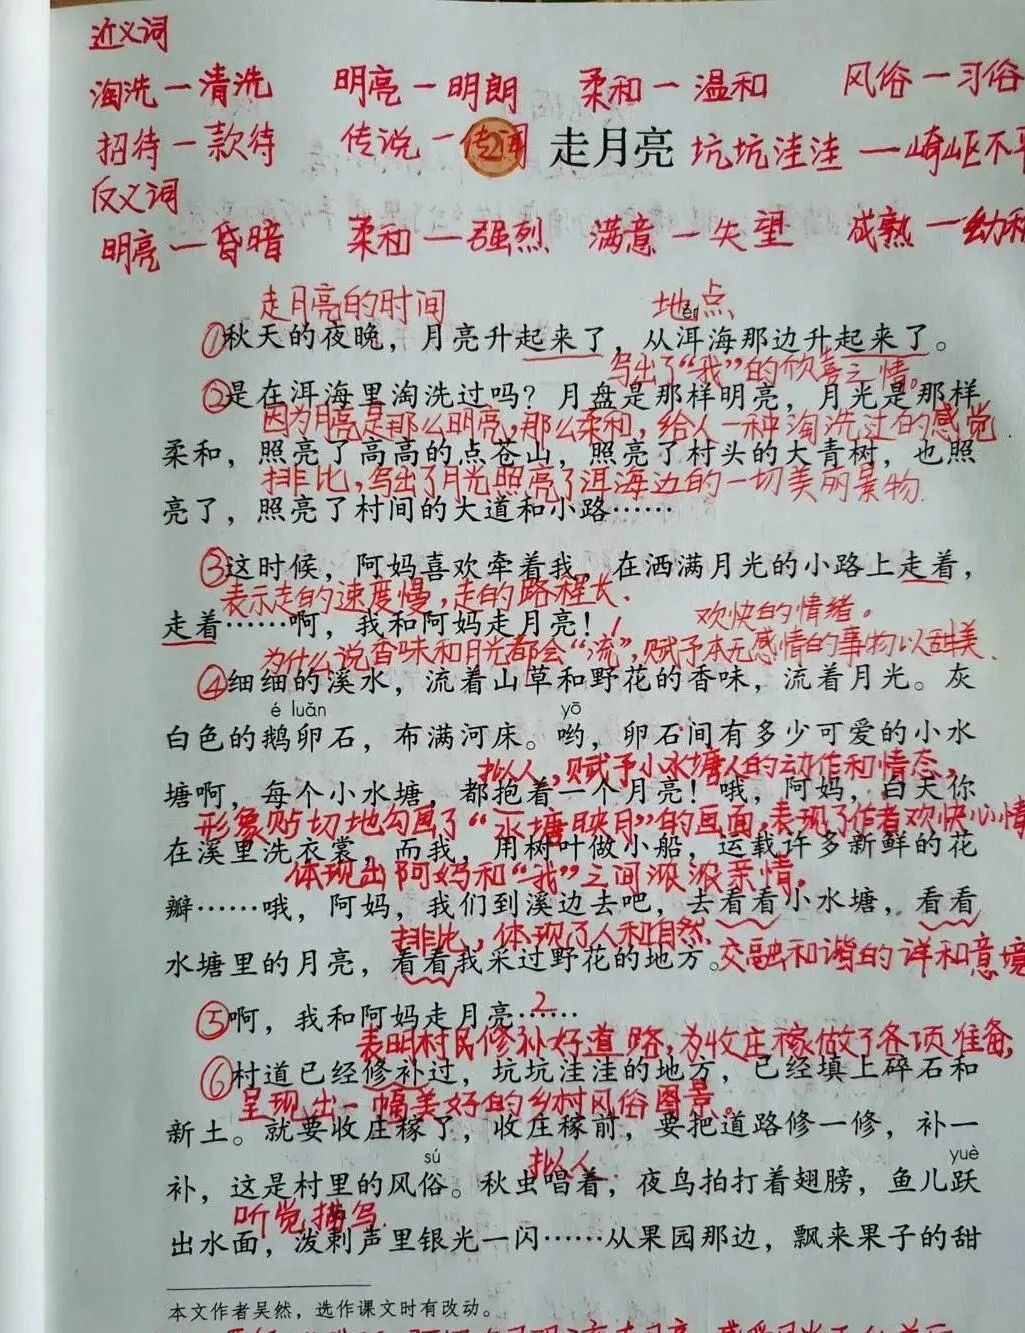 近义词
淘洗—清洗 明亮—明朗 柔和—温和 风俗—习俗
招待—款待 传说—传闻 走月亮 坑坑洼洼—崎岖不平
反义词
明亮—昏暗 柔和—强烈 满意—失望 成熟—幼稚
走月亮的时间 地点
ěr
①秋天的夜晚，月亮升起来了，从洱海那边升起来了。
写出了“我”的欣喜之情。
②是在洱海里淘洗过吗？月盘是那样明亮，月光是那样
因为月亮是那么明亮，那么柔和，给人一种淘洗过的感觉
柔和，照亮了高高的点苍山，照亮了村头的大青树，也照
排比，写出了月光照亮了洱海边的一切美丽景物.
亮了，照亮了村间的大道和小路……
③这时候，阿妈喜欢牵着我，在洒满月光的小路上走着，
表示走的速度慢，走的路程长.
走着……啊，我和阿妈走月亮！1 欢快的情绪。
为什么说香味和月光都会“流”，赋予本无感情的事物以甜美.
④细细的溪水，流着山草和野花的香味，流着月光。灰
é luǎn yō
白色的鹅卵石，布满河床。哟，卵石间有多少可爱的小水
拟人，赋予小水塘人的动作和情态，
塘啊，每个小水塘，都抱着一个月亮！哦，阿妈，白天你
形象贴切地勾画了“水塘映月”的画面，表现了作者欢快心情
在溪里洗衣裳，而我，用树叶做小船，运载许多新鲜的花
体现出阿妈和“我”之间浓浓亲情。
瓣……哦，阿妈，我们到溪边去吧，去看看小水塘，看看
排比，体现了人和自然
水塘里的月亮，看看我采过野花的地方。交融和谐的详和意境
⑤啊，我和阿妈走月亮……2
表明村民修补好道路，为收庄稼做了各项准备，
⑥村道已经修补过，坑坑洼洼的地方，已经填上碎石和
呈现出一幅美好的乡村风俗图景。
新土。就要收庄稼了，收庄稼前，要把道路修一修，补一
sú 拟人 yuè
补，这是村里的风俗。秋虫唱着，夜鸟拍打着翅膀，鱼儿跃
听觉描写.
出水面，泼剌声里银光一闪……从果园那边，飘来果子的甜
本文作者吴然，选作课文时有改动。